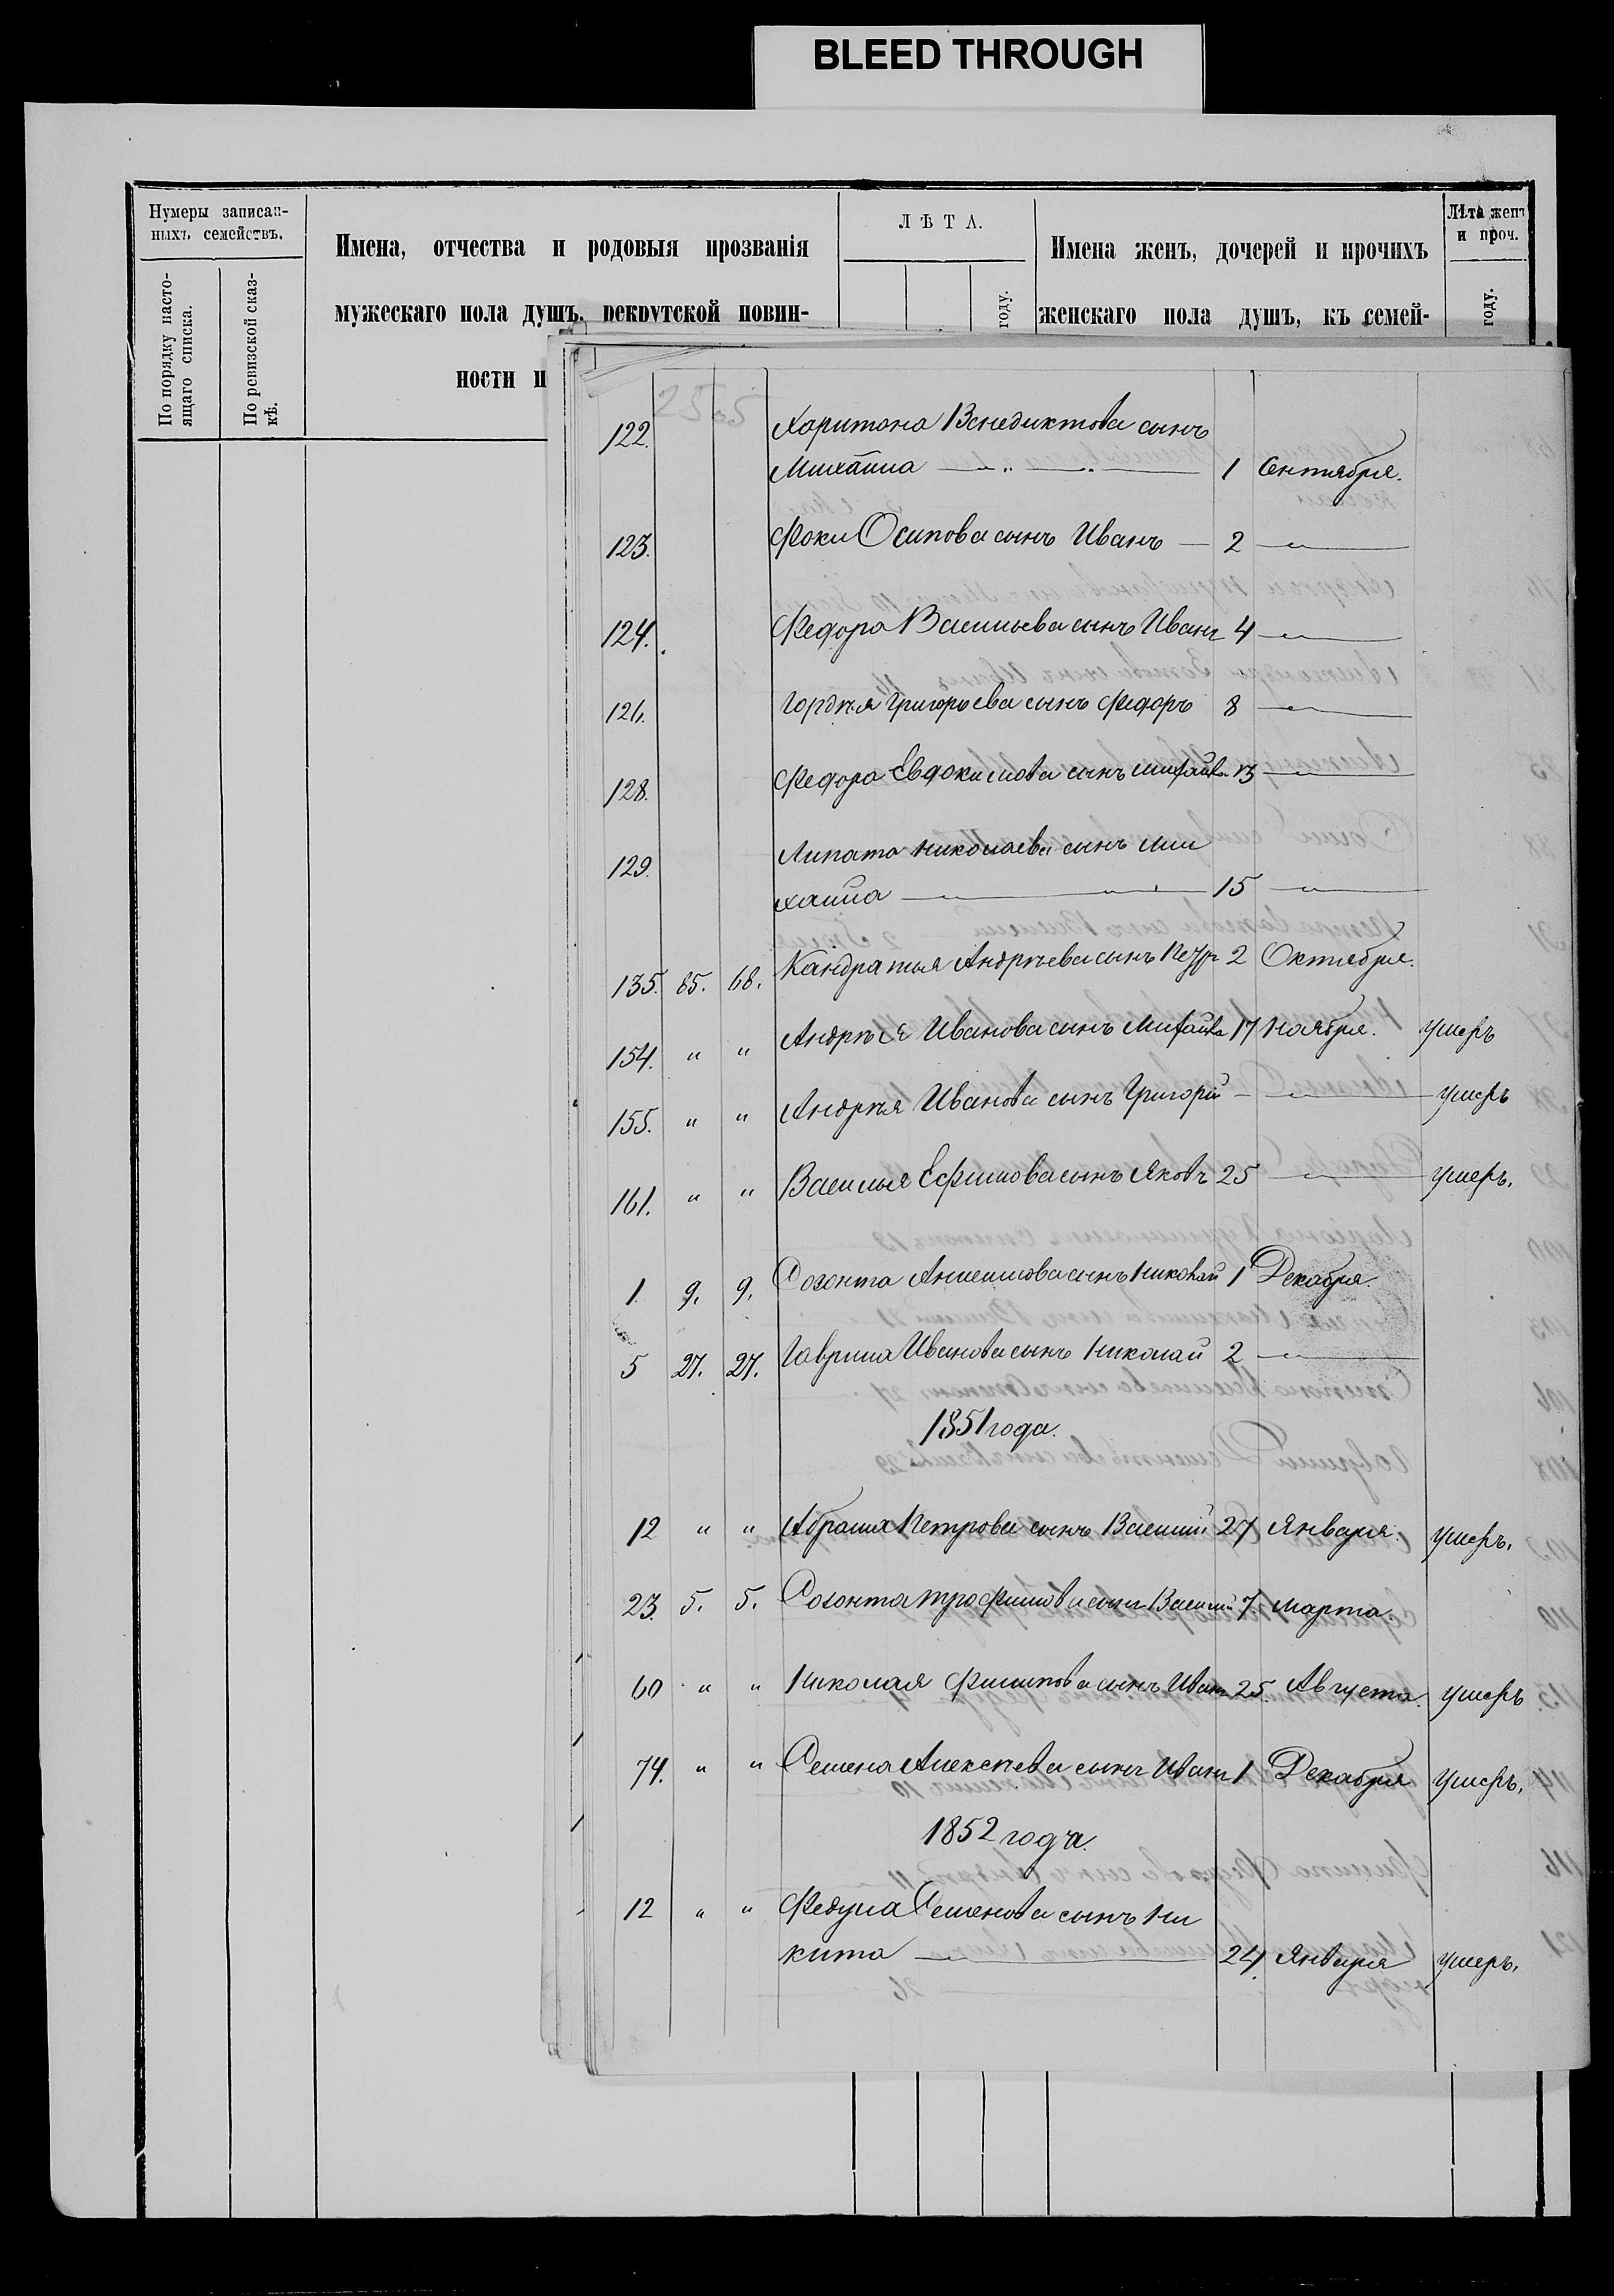 BLEED THROUGH
Нумеры записан-
ныхъ семействъ.
По порядку насто-
ящаго списка.
По ревизской сказ-
кѣ.
Имена, отчества и родовыя прозванія
мужескаго пола душъ, рекрутской повин-
ности п
ЛѢТА.
году.
Имена женъ, дочерей и прочихъ
женскаго пола душъ, къ семей-
Лѣта женъ
и проч.
году.
122. Харитона Венедиктова сынъ
Михаила 1 Сентября.
123. Фоки Осипова сынъ Иванъ 2 —"—
124. Федора Васильева сынъ Иванъ 4 —"—
126. Гордѣя Григорьева сынъ Федоръ 8 —"—
128. Федора Евдокимова сынъ Михаила 13 —"—
129. Липата Николаева сынъ Ми
хаила 15 —"—
135. 85. 68. Кандратья Андрѣева сынъ Петръ 2 Октября.
154. " " Андрѣя Иванова сынъ Михаила 17 Ноября. умеръ
155. " " Андрѣя Иванова сынъ Григорій - —"— умеръ
161. " " Василья Ефимова сынъ Яковъ 25 —"— умеръ.
1. 9. 9. Созонта Анисимова сынъ Николай 1 Декабря.
5 27. 27. Гаврила Иванова сынъ Николай 2 —"—
1851 года.
12 " " Абрама Петрова сынъ Василій 27 Января. умеръ.
23. 5. 5. Созонта Трофимова сынъ Василій 7. Марта.
60 " " Николая Филипова сынъ Иванъ 25. Августа. умеръ
74. " " Семена Алексѣева сынъ Иванъ 1 Декабря умеръ.
1852 года.
12 " " Федула Семенова сынъ Ни
кита 24. Января умеръ.